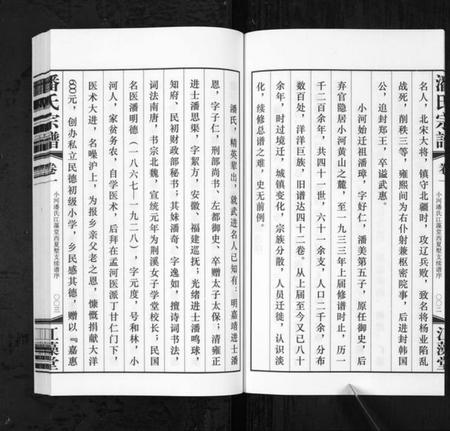 潘氏宗譜
卷一
小河潘氏江藻堂西夏墅支续谱序
〇〇二
江藻堂
名人，北宋大将，镇守北疆时，攻辽兵败，致名将杨业陷乱
战死，削秩三等，雍熙间为右仆射兼枢密院事，后进封韩国
公，追封郑王，卒谥武惠。
小河始迁祖潘璋，字好仁，潘美第五子，原任御史，后
弃官隐居小河黄山之麓，至一九三三年上届修谱时止，历一
千二百余年，共四十一世，六十一余支，人口二千余，分布
数百处，洋洋巨族，旧谱达四十二卷。从上届至今又已八十
余年，时过境迁，城镇变化，宗族分散，人员迁徙，认识淡
化，续修总谱之难，史无前例。
潘氏，精英辈出，就武进名人已知有：明嘉靖进士潘
恩，字子仁，刑部尚书，左都御史，卒赠太子太保；清雍正
进士潘思榘，字絜方，安徽、福建巡抚；光绪进士潘鸣球，
知府、民初财政部秘书；其妹潘奇，字逸如，擅诗词书法，
词法南唐，书宗北魏，宣统元年为荆溪女子学堂校长；民国
名医潘明德（一八六七—一九二八），字元度，号和林，小
河人，家贫务农，自学医术，后拜在孟河医派丁甘仁门下，
医术大进，名噪沪上，为报乡亲父老之恩，慷慨捐献大洋
600元，创办私立民德初级小学，乡民感其德，赠以『嘉惠
潘氏宗譜
卷一
小河潘氏江藻堂西夏墅支续谱序
〇〇三
江藻堂